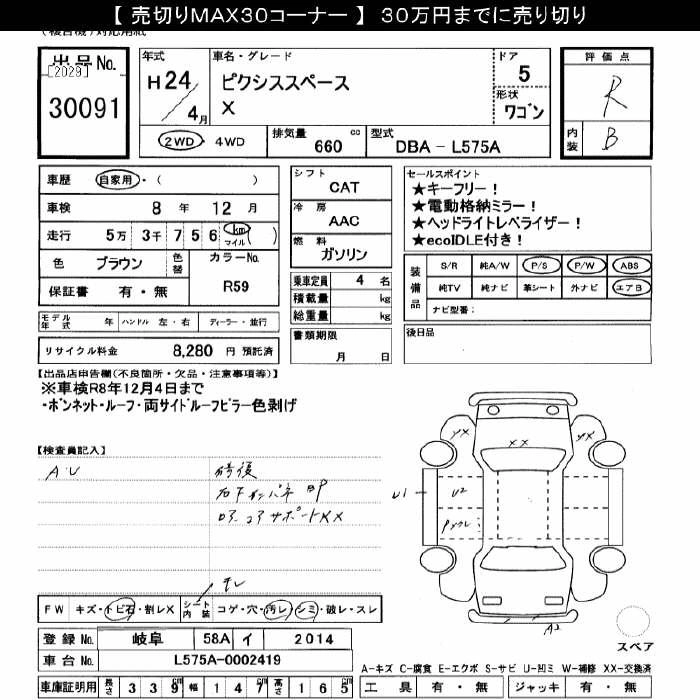 【 売切りMAX30コーナー 】 30万円までに売り切り
出品No.
[2029]
30091
年式
H24/4月
車名・グレード
ピクシススペース
X
ドア
5
形状
ワゴン
評価点
R
内装
B
2WD・4WD
排気量 660 cc
型式 DBA - L575A
車歴 自家用・( )
車検 8 年 12 月
走行 5万 3千 7 5 6 km マイル ( )
色 ブラウン 色替
カラーNo. R59
保証書 有・無
モデル年式 年 ハンドル 左・右 ディーラー・並行
リサイクル料金 8,280 円 預託済
シフト
CAT
冷房
AAC
燃料
ガソリン
乗車定員 4 名
積載量 kg
総重量 kg
書類期限
月 日
セールスポイント
★キーフリー!
★電動格納ミラー!
★ヘッドライトレベライザー!
★ecoIDLE付き!
装備品
S/R 純A/W P/S P/W ABS
純TV 純ナビ 革シート 外ナビ エアB
ナビ型番:
後日品
【出品店申告欄(不良箇所・欠品・注意事項等)】
※車検R8年12月4日まで
・ボンネット・ルーフ・両サイドルーフピラー色剥げ
【検査員記入】
A・U
修復
コアサポートXX
YX
XX
YX
U1
U2
A2
スペア
FW キズ・トビ石・割レX
シート内装 コゲ・穴・汚レ・シミ・破レ・スレ
登録No. 岐阜 58A イ 2014
車台No. L575A-0002419
車庫証明用 長さ 339 cm 幅 147 cm 高さ 165 cm
A-キズ C-腐食 E-エクボ S-サビ U-凹ミ W-補修 XX-交換済
工具 有・無 ジャッキ 有・無